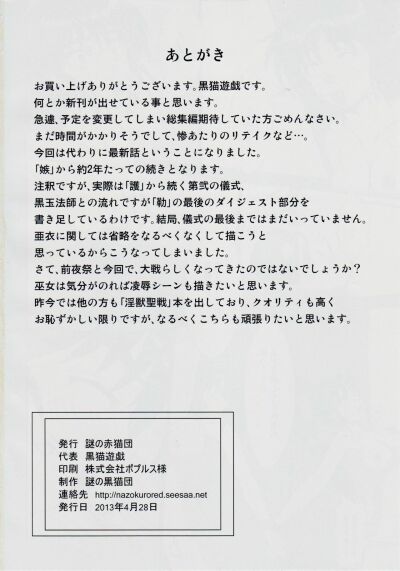 あとがき
お買い上げありがとうございます。黒猫遊戯です。
何とか新刊が出せている事と思います。
急遽、予定を変更してしまい総集編期待していた方ごめんなさい。
まだ時間がかかりそうでして、惨あたりのリテイクなど…。
今回は代わりに最新話ということになりました。
「嫉」から約2年たっての続きとなります。
注釈ですが、実際は「護」から続く第弐の儀式、
黒玉法師との流れですが「勒」の最後のダイジェスト部分を
書き足しているわけです。結局、儀式の最後まではまだいっていません。
亜衣に関しては省略をなるべくなくして描こうと
思っているからこうなってしまいました。
さて、前夜祭と今回で、大戦らしくなってきたのではないでしょうか？
巫女は気分がのれば凌辱シーンも描きたいと思います。
昨今では他の方も「淫獣聖戦」本を出しており、クオリティも高く
お恥ずかしい限りですが、なるべくこちらも頑張りたいと思います。
発行 謎の赤猫団
代表 黒猫遊戯
印刷 株式会社ポプルス様
制作 謎の黒猫団
連絡先 http://nazokurored.seesaa.net
発行日 2013年4月28日